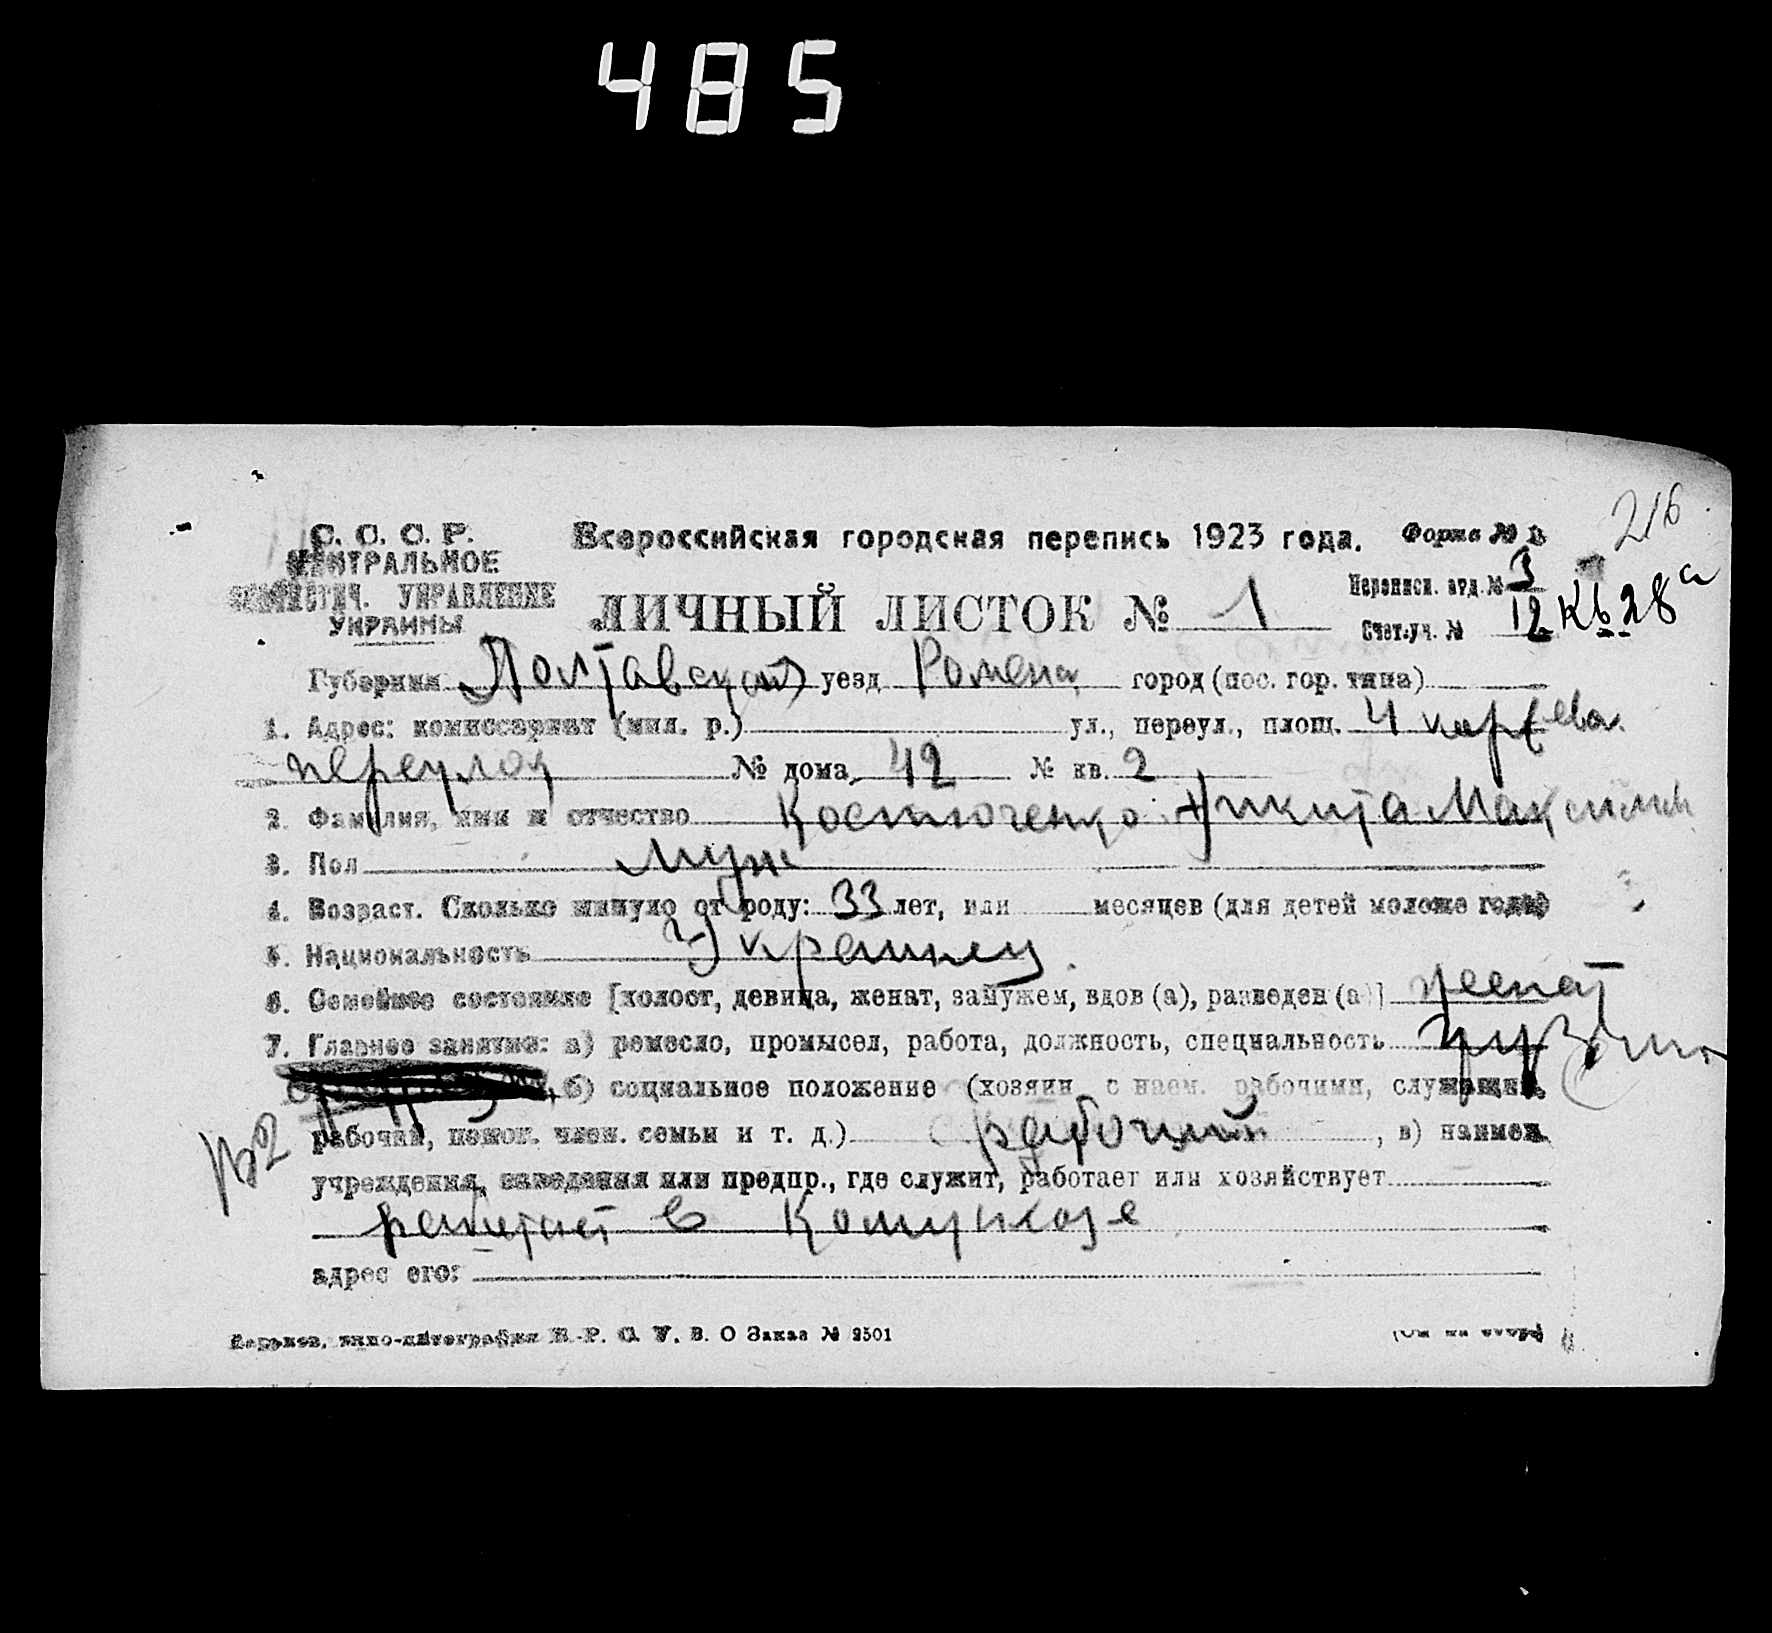 485
216
С. С. С. Р.
ЦЕНТРАЛЬНОЕ
СТАТИСТИЧ. УПРАВЛЕНИЕ
УКРАИНЫ
Всероссийская городская перепись 1923 года. Форма № В
ЛИЧНЫЙ ЛИСТОК № 1
Переписн. отд. № 3
Счет. уч. № 12 Кв 28 а
Губерния Полтавская уезд Ромена город (пос. гор. типа)
1. Адрес: комиссариат (мил. р.) ул., переул., площ. 4
переулок № дома 42 № кв. 2
2. Фамилия, имя и отчество Костюченко Никита Максимов
3. Пол Муж
4. Возраст. Сколько минуло от роду: 33 лет, или месяцев (для детей моложе года)
5. Национальность Украинец
6. Семейное состояние [холост, девица, женат, замужем, вдов (а), разведен (а)] женат
7. Главное занятие: а) ремесло, промысел, работа, должность, специальность
б) социальное положение (хозяин с наем. рабочими, служащий,
рабочий, помог. член. семьи и т. д.) рабочий , в) наимен.
№2
учреждения, заведения или предпр., где служит, работает или хозяйствует
работает в Комунхозе
адрес его:
Харьков, типо-литография В. О Заказ № 2501